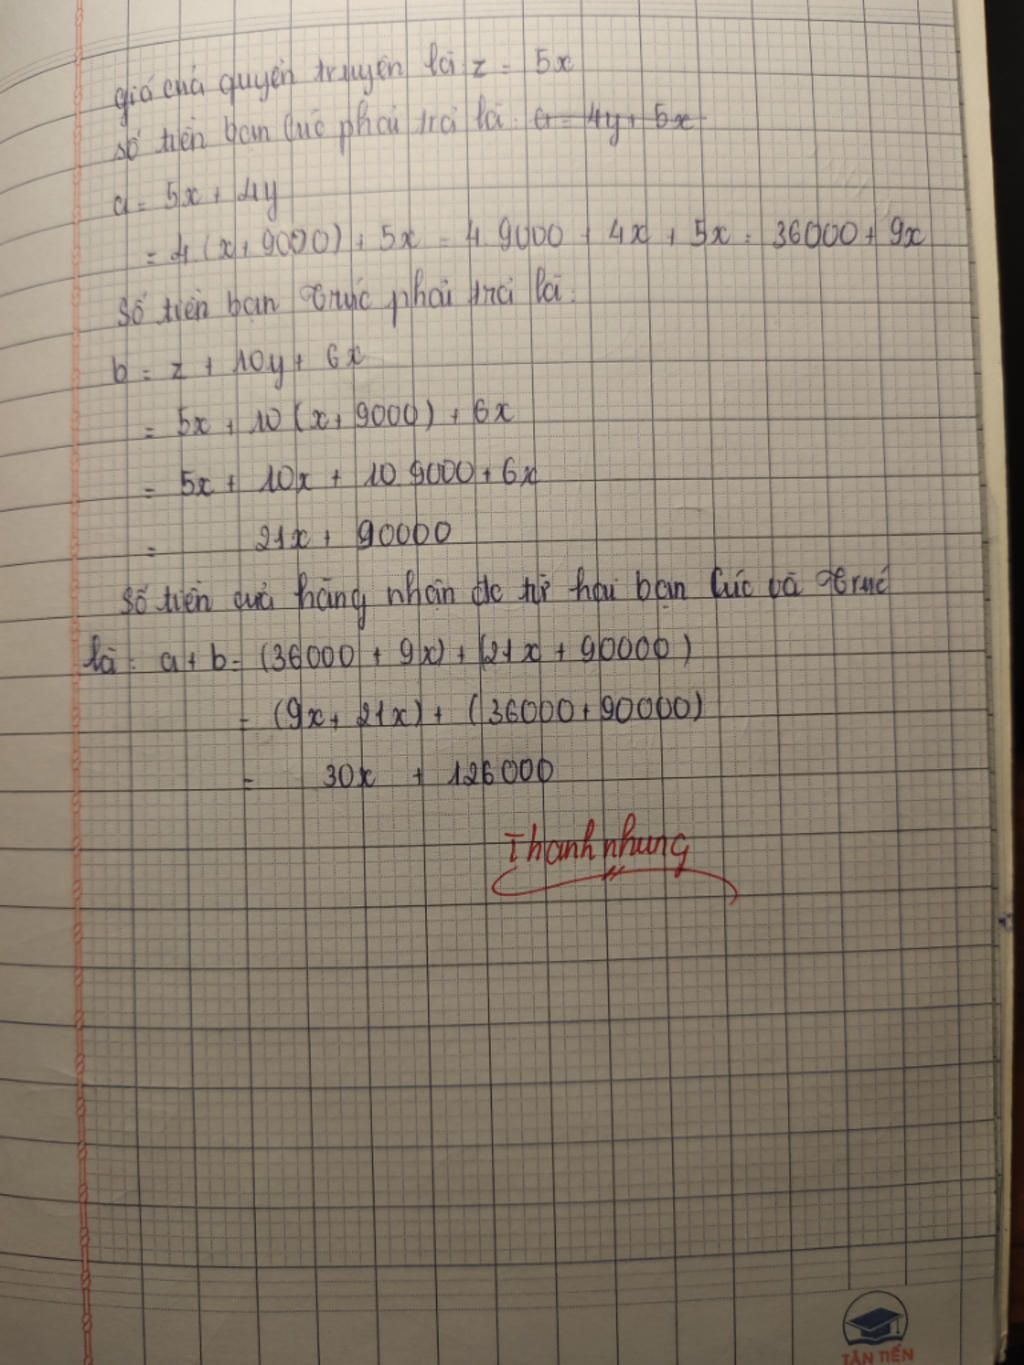 giá của quyển truyện là z = 5x
số tiền bạn Cúc phải trả là a = 4y + 5x
a = 5x + 4y
= 4(x + 9000) + 5x = 4 9000 + 4x + 5x = 36000 + 9x
Số tiền bạn Trúc phải trả là:
b = z + 10y + 6x
= 5x + 10(x + 9000) + 6x
= 5x + 10x + 10 9000 + 6x
= 21x + 90000
Số tiền cửa hàng nhận đc từ hai bạn Cúc và Trúc
là: a + b = (36000 + 9x) + (21x + 90000)
= (9x + 21x) + (36000 + 90000)
= 30x + 126000
Thanh nhung
TÂN TIẾN